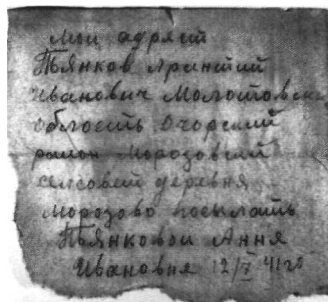 Мои адряст
Пьянков Арантий
Иванович Молотовски
облость, Очорский
район Морозовский
селсовет деревня
Морозово посылать
Пьянковои Ання
Ивановня 12/X 41го